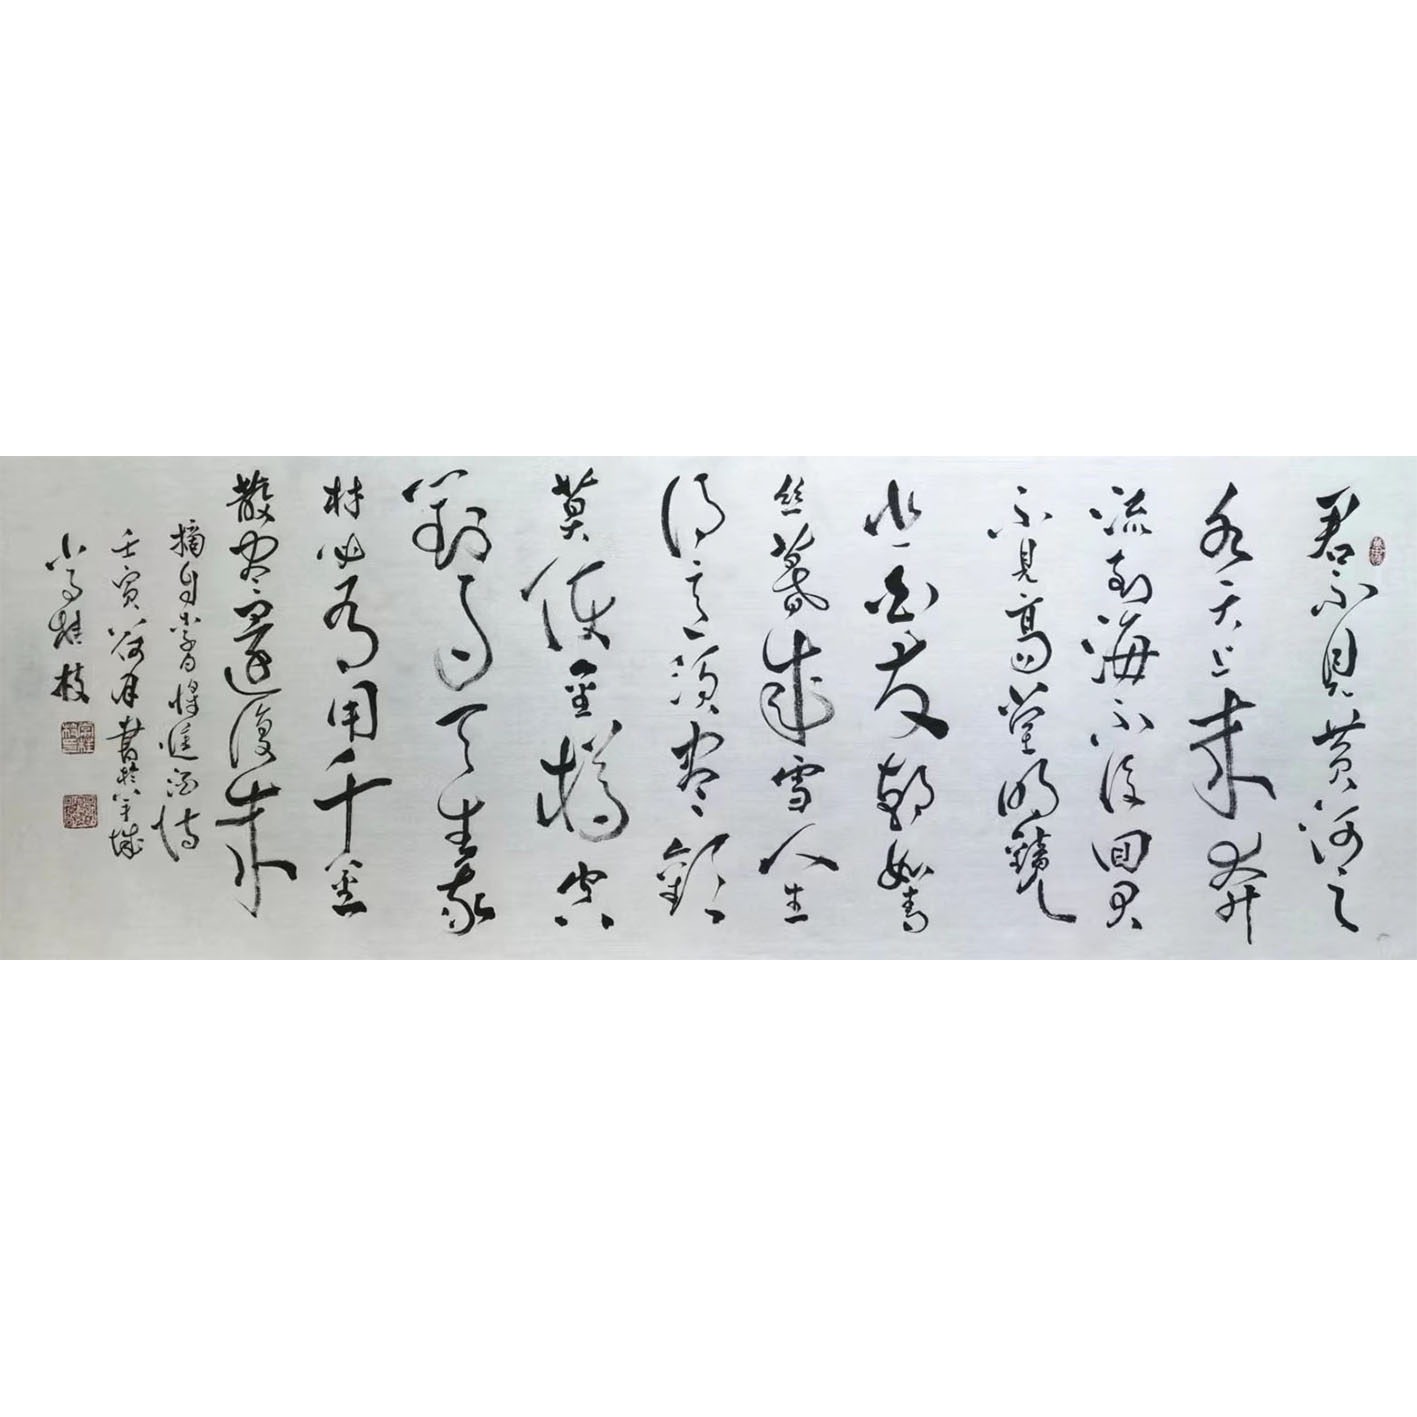 君不見黄河之
水天上来奔
流到海不復回君
不見高堂明鏡
悲白髮朝如青
丝暮成雪人生
得意须尽歡
莫使金樽空
對月天生我
材必有用千金
散尽還復来
摘自李白將進酒诗
壬寅荷月書於羊城
桂枝